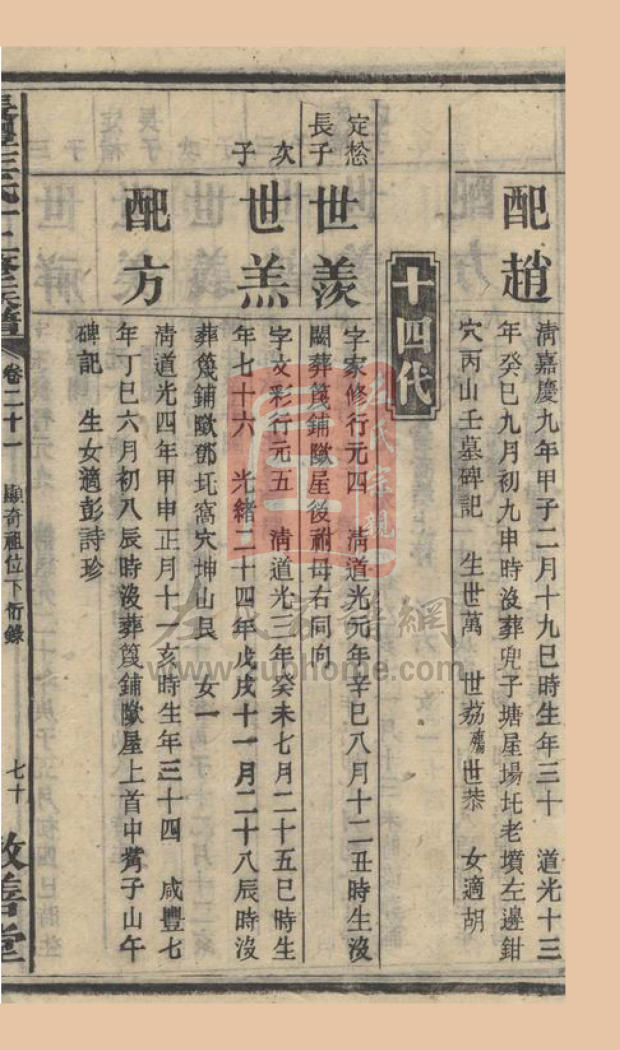 配趙
清嘉慶九年甲子二月十九巳時生年三十　道光十三
年癸巳九月初九申時沒葬兜子塘屋場圫老墳左邊鉗
穴丙山壬墓碑記　生世萬　世茘殤世恭　女適胡
十四代
定愻長子
世羨
字家修行元四　清道光元年辛巳八月十二丑時生沒
闕葬篾鋪歘屋後祔母右同向
次子
世羔
字文彩行元五　清道光三年癸未七月二十五巳時生
年七十六　光緒二十四年戊戌十一月二十八辰時沒
葬篾鋪歘鄧圫窩穴坤山艮　女一
配方
清道光四年甲申正月十一亥時生年三十四　咸豐七
年丁巳六月初八辰時沒葬篾鋪歘屋上首中嘴子山午
碑記　生女適彭詩珍
卷二十一　顯奇祖位下衍錄　七十　敦善堂
左氏宗親
www.zuohome.com